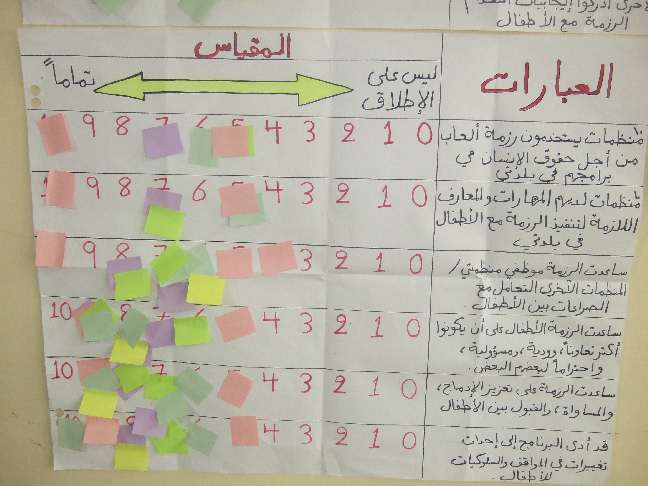 لأخرى أدركوا إيجابيات
الرزمة مع الأطفال
العبارات
المقياس
ليس على الإطلاق
تماماً
منظمات يستخدمون رزمة ألعاب
من أجل حقوق الإنسان في
برامجهم في بلدتي
9 8 7 6 5 4 3 2 1 0
منظمات لديهم المهارات والمعارف
اللازمة لتنفيذ الرزمة مع الأطفال
في بلدتي
9 8 7 6 5 4 3 2 1 0
ساعدت الرزمة موظفي منظمتي /
المنظمات الأخرى التعامل مع
الصراعات بين الأطفال
9 8 3 2 1 0
ساعدت الرزمة الأطفال على أن يكونوا
أكثر تعاوناً، وودية، ومسؤولية،
واحتراماً لبعضهم البعض.
10 8 7 4 3 2 1 0
ساعدت الرزمة على تعزيز الإدماج،
والمساواة، والقبول بين الأطفال
10 7 4 3 2 1 0
قد أدى البرنامج إلى إحداث
تغييرات في المواقف والسلوكيات
للأطفال.
4 3 2 1 0